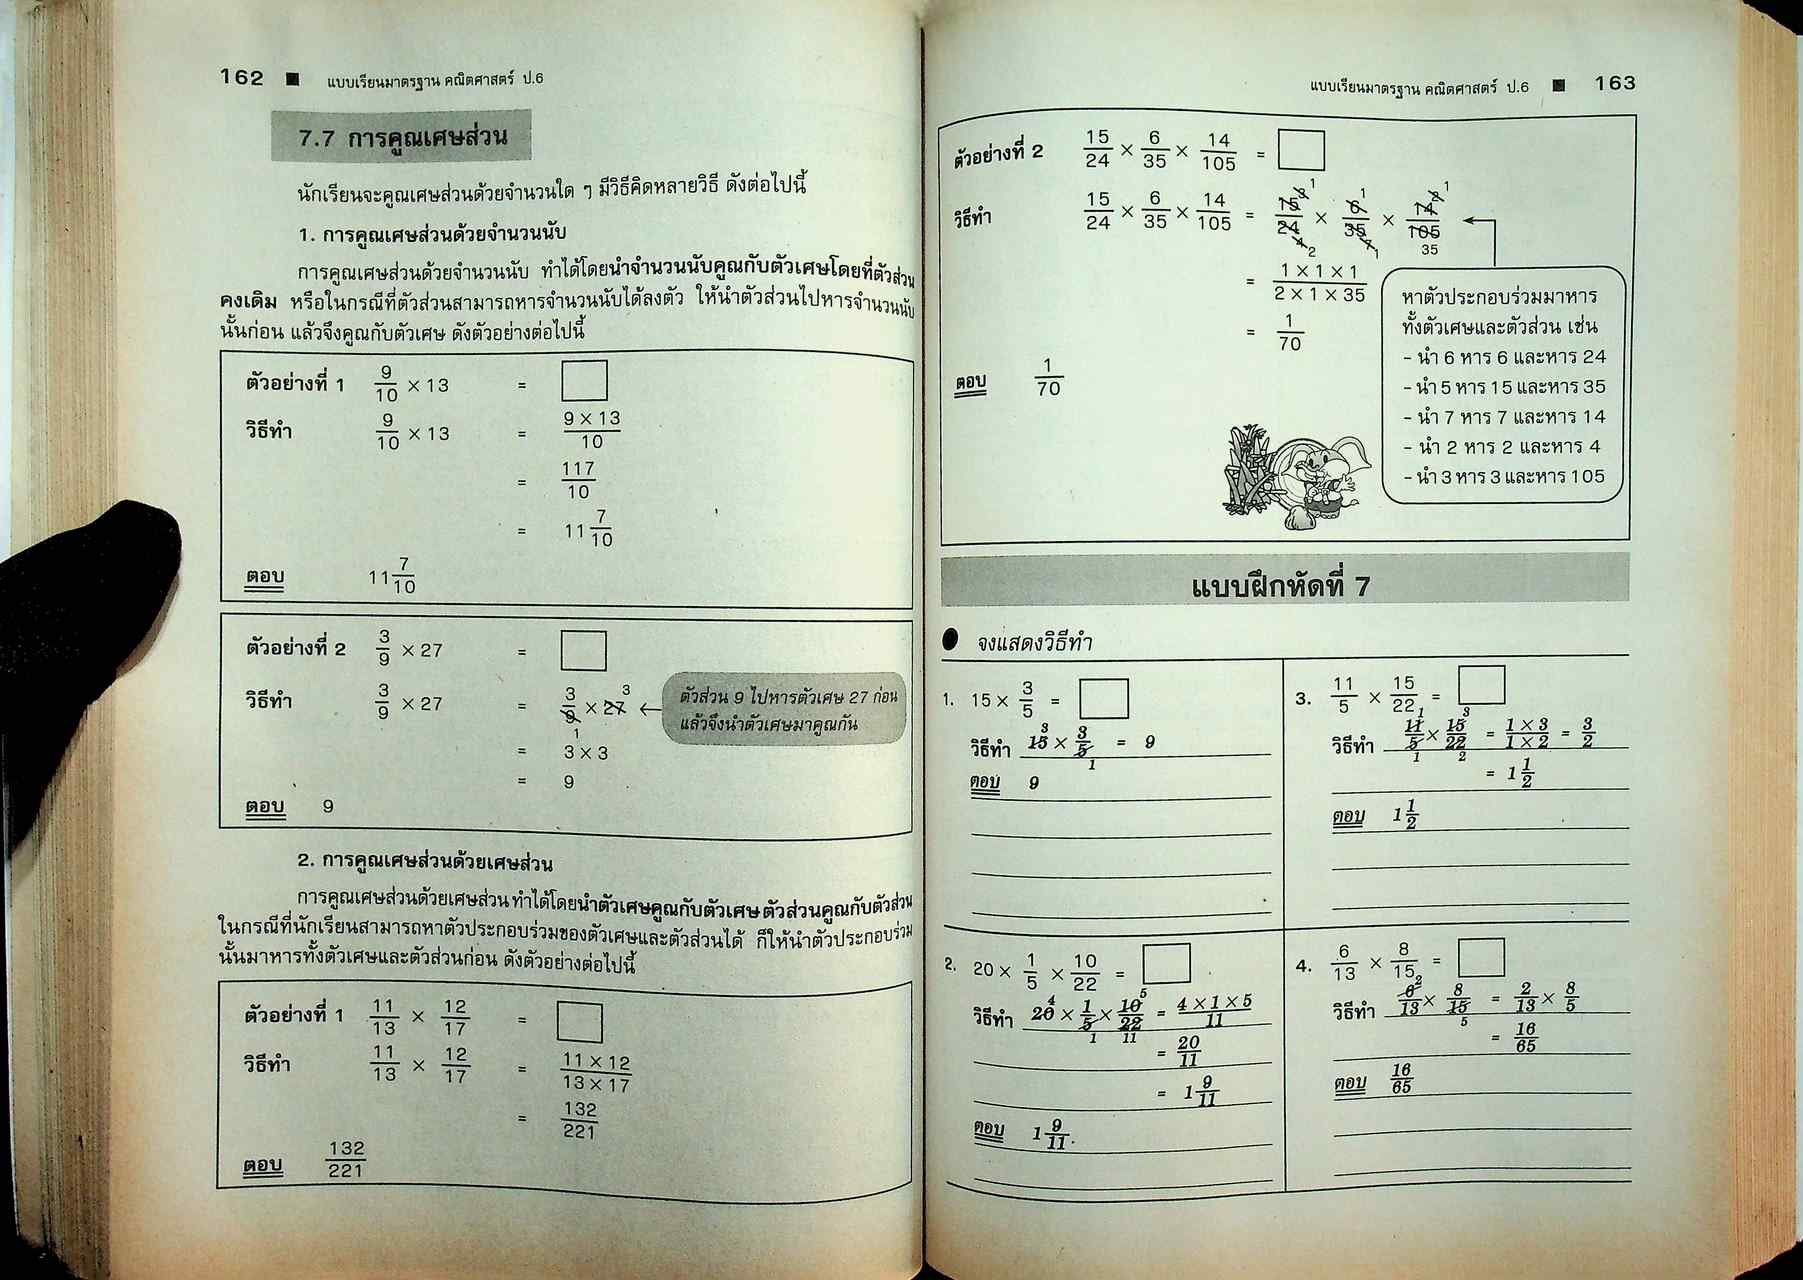 162 ■ แบบเรียนมาตรฐาน คณิตศาสตร์ ป.6
7.7 การคูณเศษส่วน
นักเรียนจะคูณเศษส่วนด้วยจำนวนใด ๆ มีวิธีคิดหลายวิธี ดังต่อไปนี้
1. การคูณเศษส่วนด้วยจำนวนนับ
การคูณเศษส่วนด้วยจำนวนนับ ทำได้โดยนำจำนวนนับคูณกับตัวเศษโดยที่ตัวส่วน
คงเดิม หรือในกรณีที่ตัวส่วนสามารถหารจำนวนนับได้ลงตัว ให้นำตัวส่วนไปหารจำนวนนับ
นั้นก่อน แล้วจึงคูณกับตัวเศษ ดังตัวอย่างต่อไปนี้
ตัวอย่างที่ 1 9/10 × 13 = □
วิธีทำ 9/10 × 13 = 9 × 13/10
= 117/10
= 11 7/10
ตอบ 11 7/10
ตัวอย่างที่ 2 3/9 × 27 = □
วิธีทำ 3/9 × 27 = 3/9 1 × 27 3
ตัวส่วน 9 ไปหารตัวเศษ 27 ก่อน
แล้วจึงนำตัวเศษมาคูณกัน
= 3 × 3
= 9
ตอบ 9
2. การคูณเศษส่วนด้วยเศษส่วน
การคูณเศษส่วนด้วยเศษส่วน ทำได้โดยนำตัวเศษคูณกับตัวเศษ ตัวส่วนคูณกับตัวส่วน
ในกรณีที่นักเรียนสามารถหาตัวประกอบร่วมของตัวเศษและตัวส่วนได้ ก็ให้นำตัวประกอบร่วม
นั้นมาหารทั้งตัวเศษและตัวส่วนก่อน ดังตัวอย่างต่อไปนี้
ตัวอย่างที่ 1 11/13 × 12/17 = □
วิธีทำ 11/13 × 12/17 = 11 × 12/13 × 17
= 132/221
ตอบ 132/221
แบบเรียนมาตรฐาน คณิตศาสตร์ ป.6 ■ 163
ตัวอย่างที่ 2 15/24 × 6/35 × 14/105 = □
วิธีทำ 15/24 × 6/35 × 14/105 = 15/24 × 6/35 × 14/105
= 1 × 1 × 1/2 × 1 × 35
= 1/70
ตอบ 1/70
หาตัวประกอบร่วมมาหาร
ทั้งตัวเศษและตัวส่วน เช่น
- นำ 6 หาร 6 และหาร 24
- นำ 5 หาร 15 และหาร 35
- นำ 7 หาร 7 และหาร 14
- นำ 2 หาร 2 และหาร 4
- นำ 3 หาร 3 และหาร 105
แบบฝึกหัดที่ 7
● จงแสดงวิธีทำ
1. 15 × 3/5 = □
วิธีทำ 15 3 × 3/5 1 = 9
ตอบ 9
2. 20 × 1/5 × 10/22 = □
วิธีทำ 20 4 × 1/5 1 × 10 5/22 11 = 4 × 1 × 5/11
= 20/11
= 1 9/11
ตอบ 1 9/11.
3. 11/5 × 15/22 = □
วิธีทำ 11 1/5 1 × 15 3/22 2 = 1 × 3/1 × 2 = 3/2
= 1 1/2
ตอบ 1 1/2
4. 6/13 × 8/15 = □
วิธีทำ 6 2/13 × 8/15 5 = 2/13 × 8/5
= 16/65
ตอบ 16/65